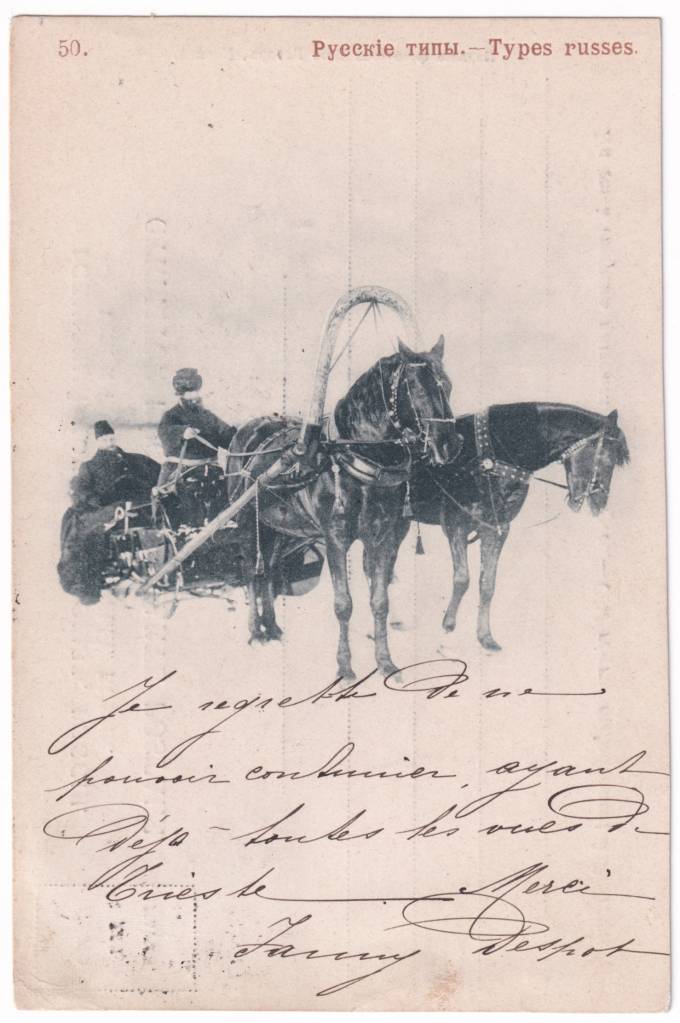 50.
Русскіе типы.—Types russes.
Je regrette de ne
pouvoir continuer, ayant
déjà toutes les vues de
Trieste Merci
Fanny Despot